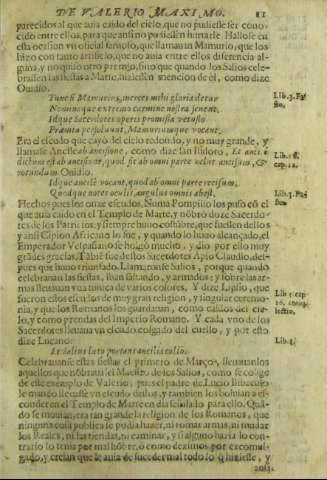 DE VALERIO MAXIMO. 81
parecidos al que auia caido del cielo, que no pudiesse ser cono-
cido entre ellos, para que ansi no pudiessen hurtarle. Hallose en
esta ocasion vn oficial famoso, que llamauan Mamurio, que los
hizo con tanto artificio, que no auia entre ellos diferencia al-
guna, y no quiso otro premio, sino que quando los Salios cele-
brassen las fiestas a Marte, hiziessen mencion de el, como dize
Ouidio.
Tunc si Mamurius, merces mihi gloria detur
Nominaque extremo carmine nostra sonent,
Idque Sacerdotes operi promissa vetusto
Præmia persoluunt, Mamuriumque vocant.
Lib. 3. Fa-
sto.
Era el escudo que cayò del cielo redondo, y no muy grande, y
llamase Ancile ab ancisione, como dize san Isidoro, Et anci e
dictum est ab ancisione, quod sit ab omni parte velut ancisum, &
rotundum Ouidio.
Lib. 18.
cap. 12.
Idque ancile vocant, quod ab omni parte recisum,
Quodque notes oculis, angulus omnis abest.
Lib. 3. Fa-
sto.
Hechos pues los onze escudos, Numa Pompilio los puso cõ el
que auia caido en el Templo de Marte, y nõbrò doze Sacerdo-
tes de los Patricios, y siempre huuo costũbre, que fuessen dellos
y ansi Cipion Africano lo fue, y quando lo huuo alcançado, el
Emperador Vespasiano se holgò mucho, y dio por ello muy
grãdes gracias. Tãbiẽ fue destos Sacerdotes Apio Claudio, des-
pues que huuo triunfado. Llamaronse Salios, porque quando
celebrauan las fiestas, ihan saltando, y armados: y sobre las ar-
mas lleuauan vna tunica de varios colores. Y dize Lipsio, que
fueron estos escudos de muy gran religion, y singular ceremo-
nia, y que los Romanos los guardauan, como caidos del cie-
lo, y como prendas del Imperio Romano. Y cada vno de los
Sacerdotes lleuaua vn escudo colgado del cuello, y por esto
dize Lucano:
Et Salius læto portans ancilia collo.
Lib. 1.
Celebrauanse estas fiestas el primero de Março, lleuauanlos
aquellos que nõbraua el Maestro de los Salios, como se colige
de este exemplo de Valerio, pues el padre de Lucio Bibaculo
le mandò lleuasse vn escudo destos, y tambien los boluian a es-
conder en el Templo de Marte en dia señalado para ello. Quã-
do se mouian, era tan grande la religion de los Romanos, que
ninguna cosa publica se podia hazer, ni tomar armas, ni mudar
los Reales, ni las tiendas, ni caminar, y si alguno hazia lo con-
trario lo tenia por mal hõbre, o como dezimos por excomul-
gado, y creian que le auia de suceder mal todo lo q̃ hiziesse, y